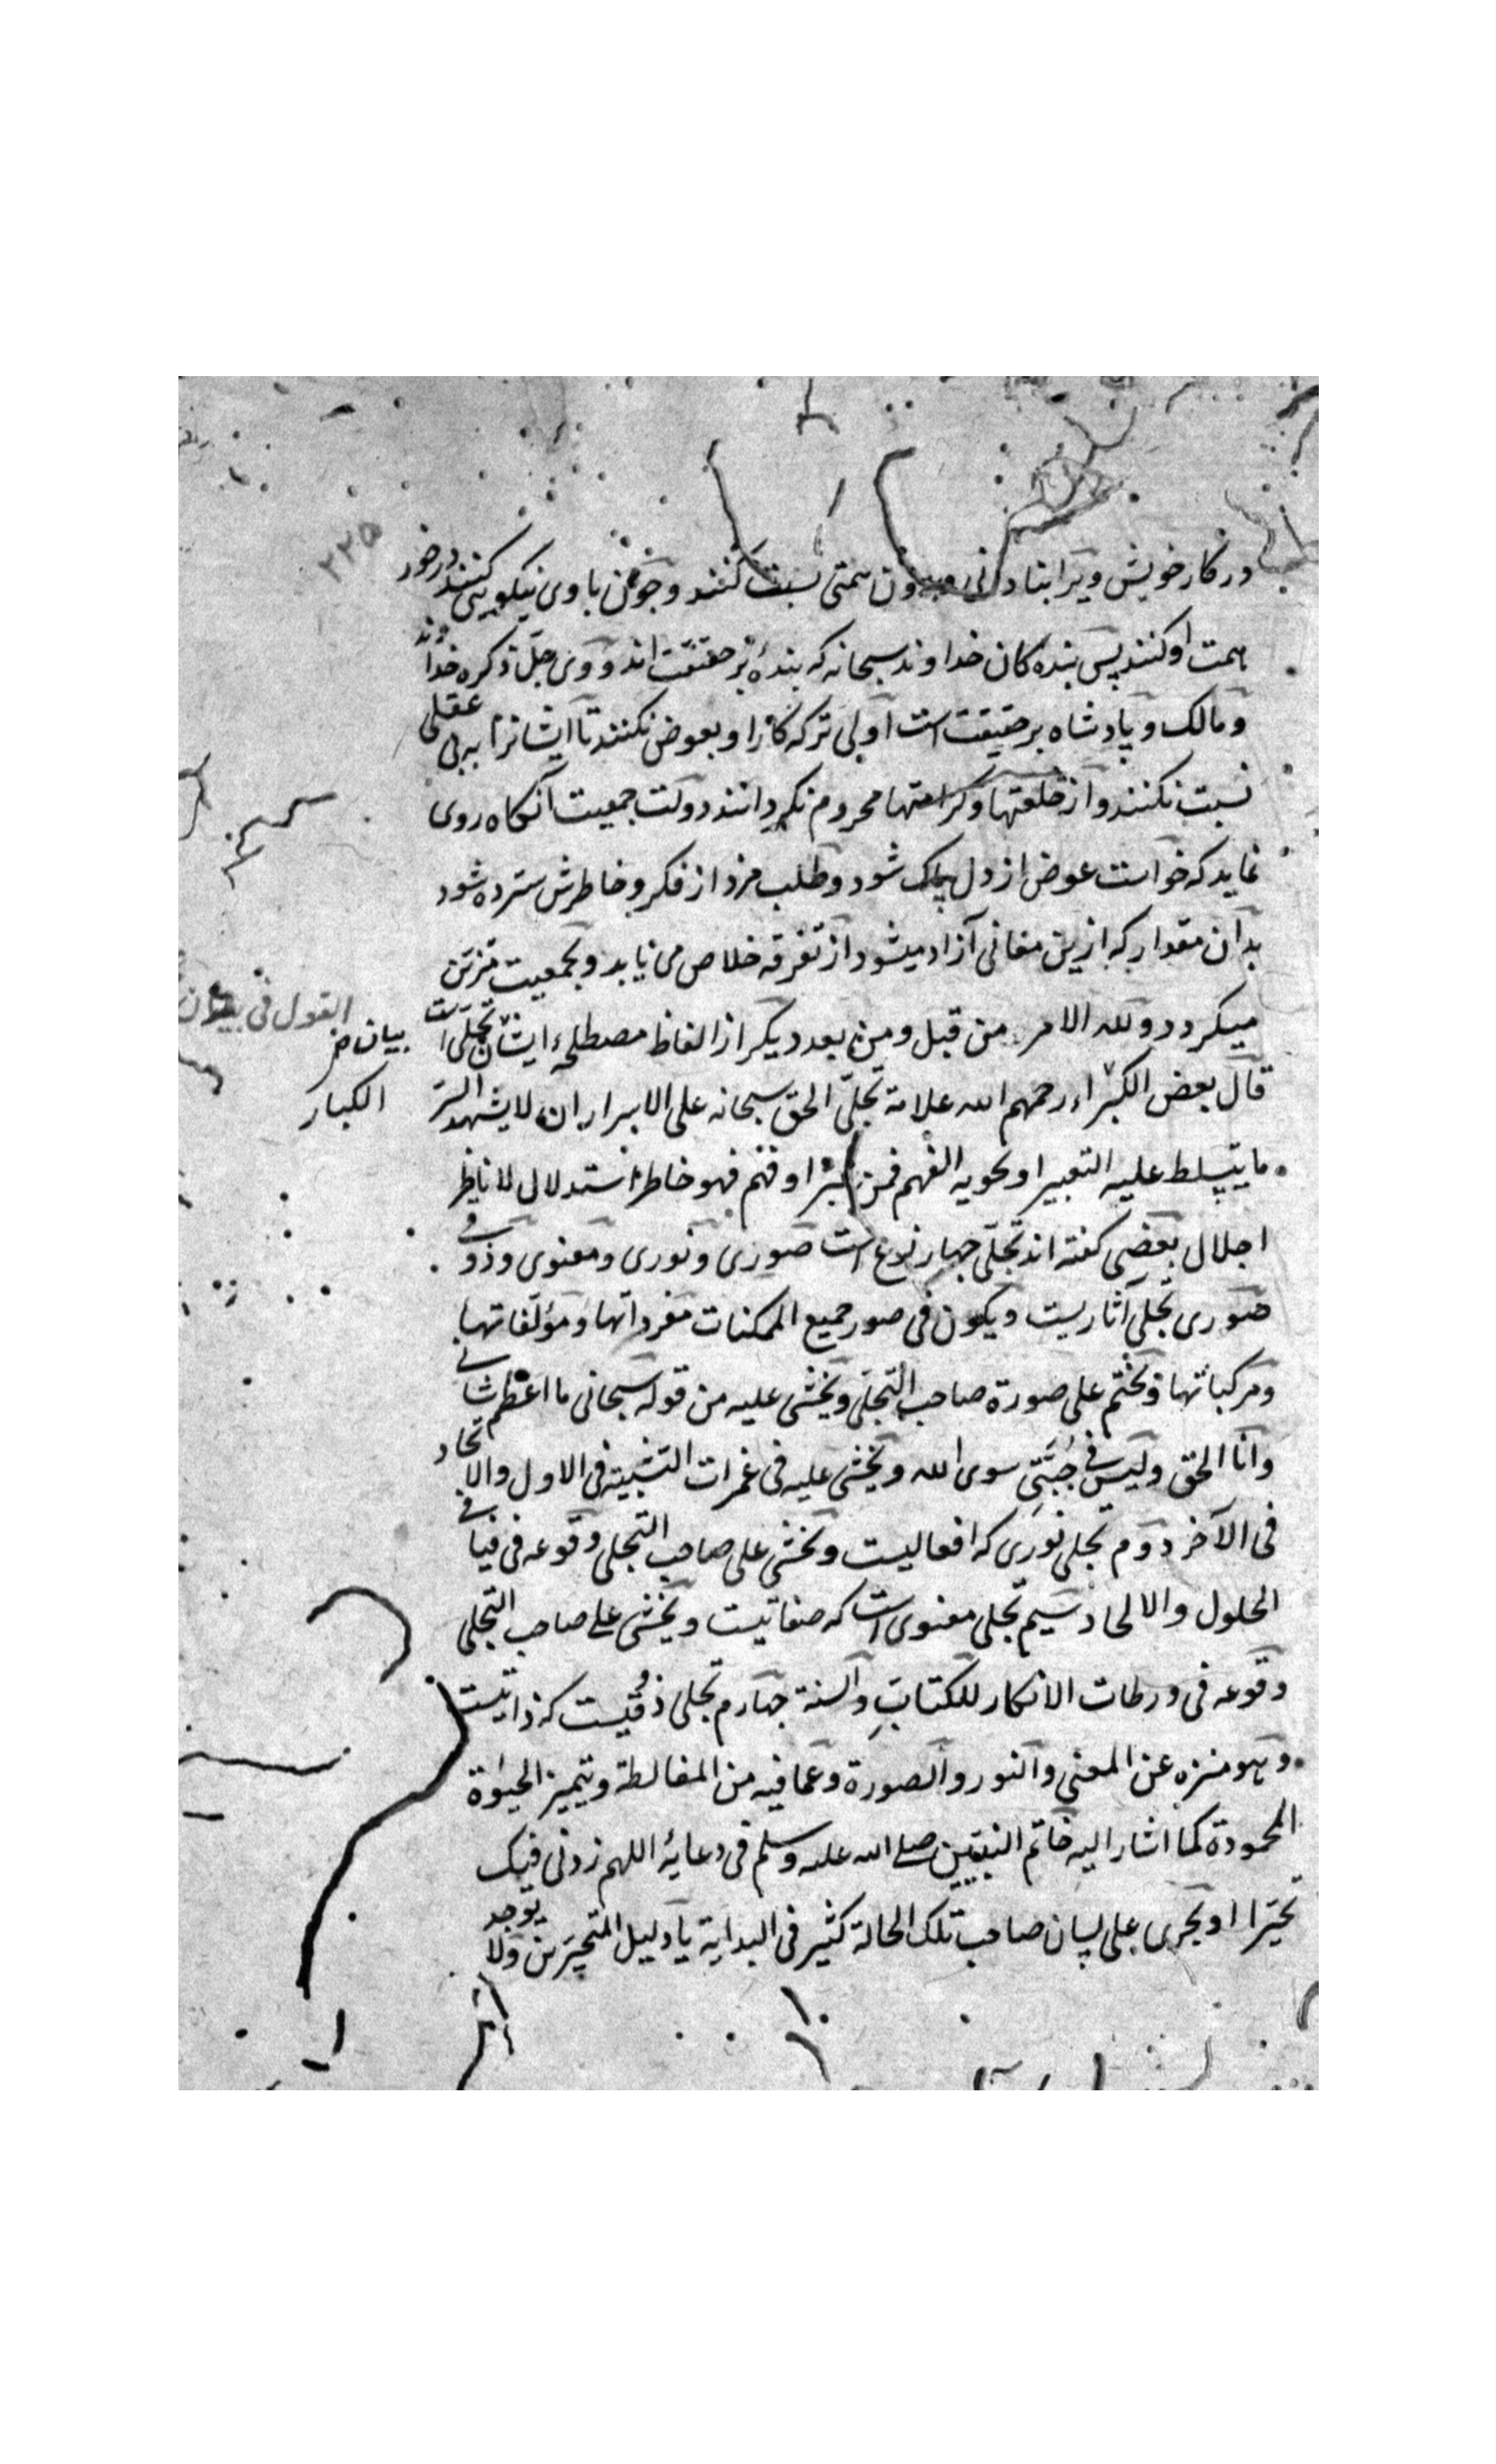 ۲۲۵
در کار خویش ویرا بنادانی و دون همتی نسبت کنند و چون با وی نیکویی کنند درخور
همت او کنند پس بنده کان خداوند سبحانه که بندۀ بر حقیقت اند و وی جل ذکره خداوند
و مالک و پادشاه بر حقیقت است اولی تر که کار او بعوض نکنند تا ایشانرا به بی عقلی
نسبت نکنند و از خلعتها و کرامتها محروم نکردانند دولت جمعیت آنکاه روی
نماید که خواست عوض از دل پاک شود و طلب مزد از فکر و خاطرش سترده شود
بدان مقدار که ازین معانی آزاد میشود از تفرقه خلاص می یابد و بجمعیت متزین
میکردد و لله الامر من قبل و من بعد دیکر از الفاظ مصطلحۀ ایشان تجلی است
القول فی بیان
بیان
الکبار
قال بعض الکبراء رحمهم الله علامة تجلی الحق سبحانه علی الاسرار ان لا یشهد السر
ما یتسلط علیه التعبیر او یحویه الفهم فمن عبر او فهم فهو خاطر استدلال لا ناظر
اجلال بعضی کفته اند تجلی چهار نوع است صوری و نوری و معنوی و ذوقی
صوری تجلی آثاریست و یکون فی صور جمیع الممکنات مفرداتها و مؤلفاتها
و مرکباتها و یختم علی صورة صاحب التجلی و یخشی علیه من قوله سبحانی ما اعظم شانی
و انا الحق و لیس فی جبتی سوی الله و یخشی علیه فی غمرات التشبیه فی الاول و الاتحاد
فی الآخر دوم تجلی نوری که افعالیست و یخشی علی صاحب التجلی وقوعه فی فیافی
الحلول و الالحاد سیم تجلی معنوی است که صفاتیست و یخشی علی صاحب التجلی
وقوعه فی ورطات الانکار للکتاب و السنة چهارم تجلی ذوقیست که ذاتیست
و هو منزه عن المعنی و النور و الصورة و عما فیه من المغالطة و یتمیز الحیوة
المحمودة کما اشار الیه خاتم النبیین صلی الله علیه وسلم فی دعایه اللهم زدنی فیک
تحیرا او یجری علی لسان صاحب تلک الحالة کثیر فی البدایة یا دلیل المتحیرین ولا یوجد